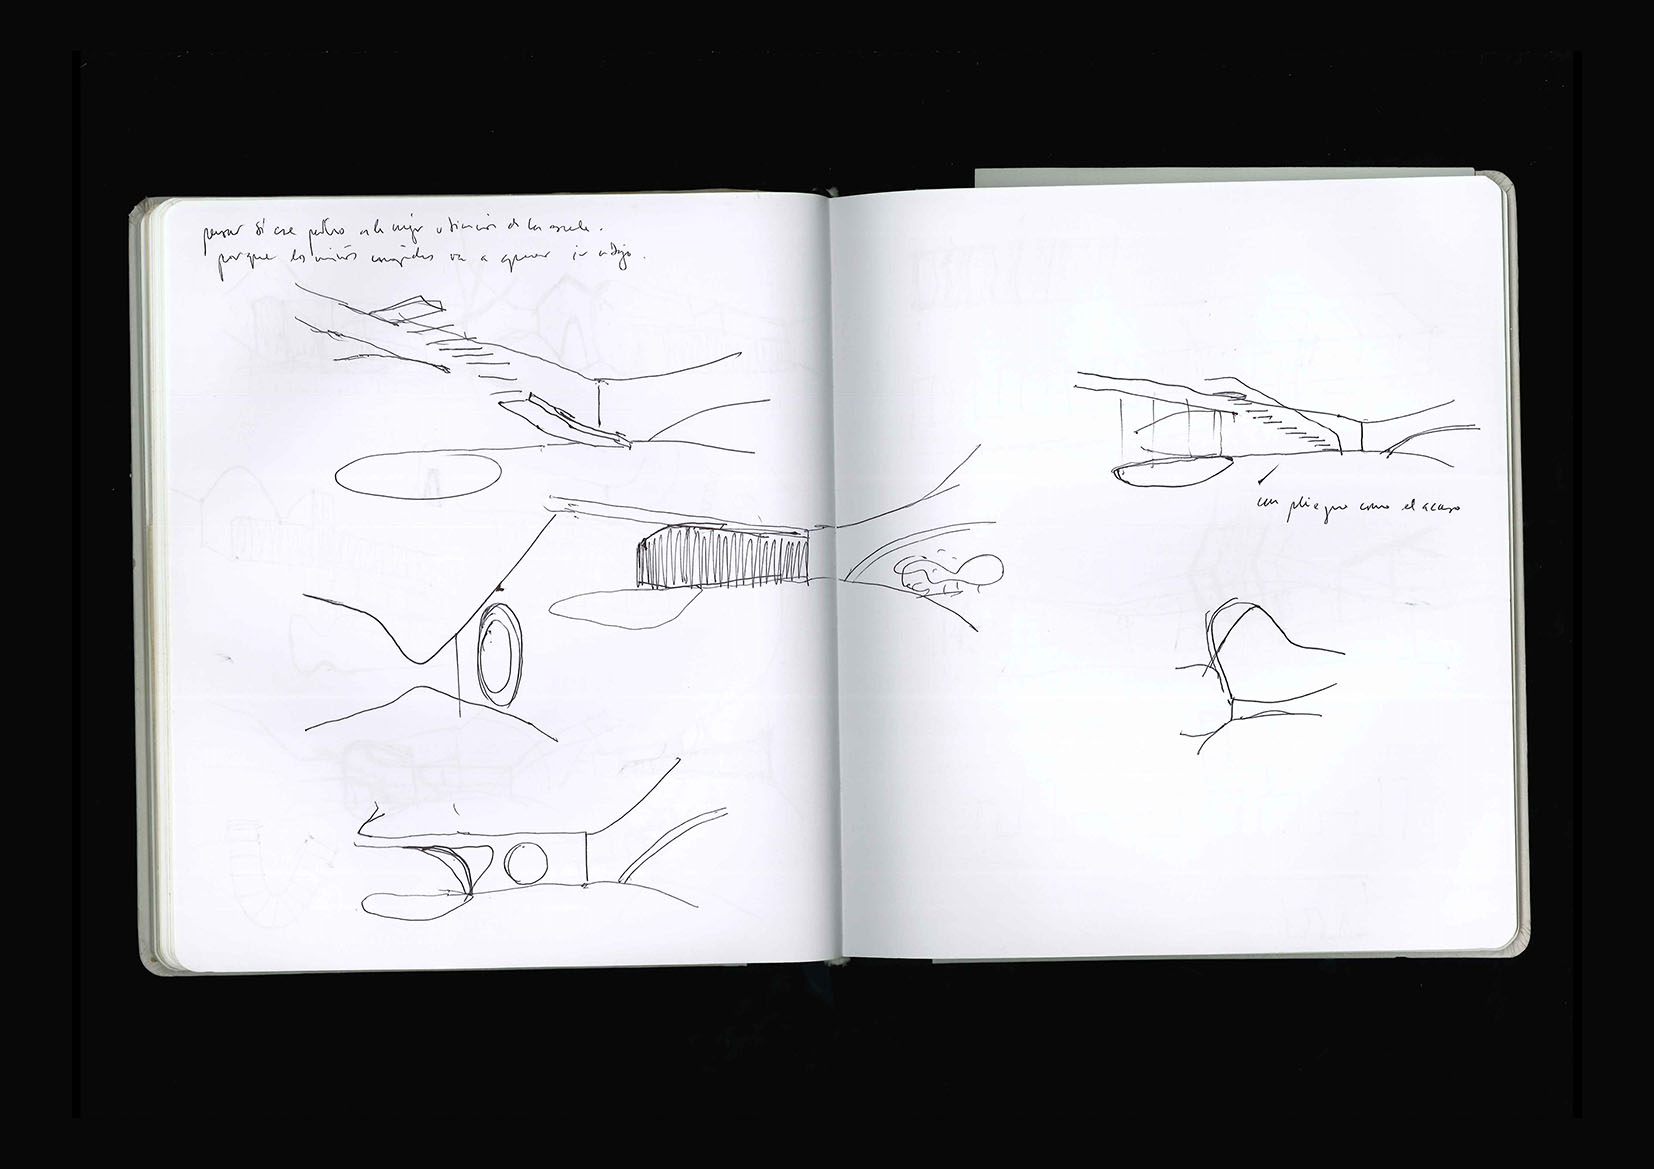 pensar si ese patio es la mejor ubicación de la escuela.
porque los niños van a querer ir abajo.
un pliegue como el acceso